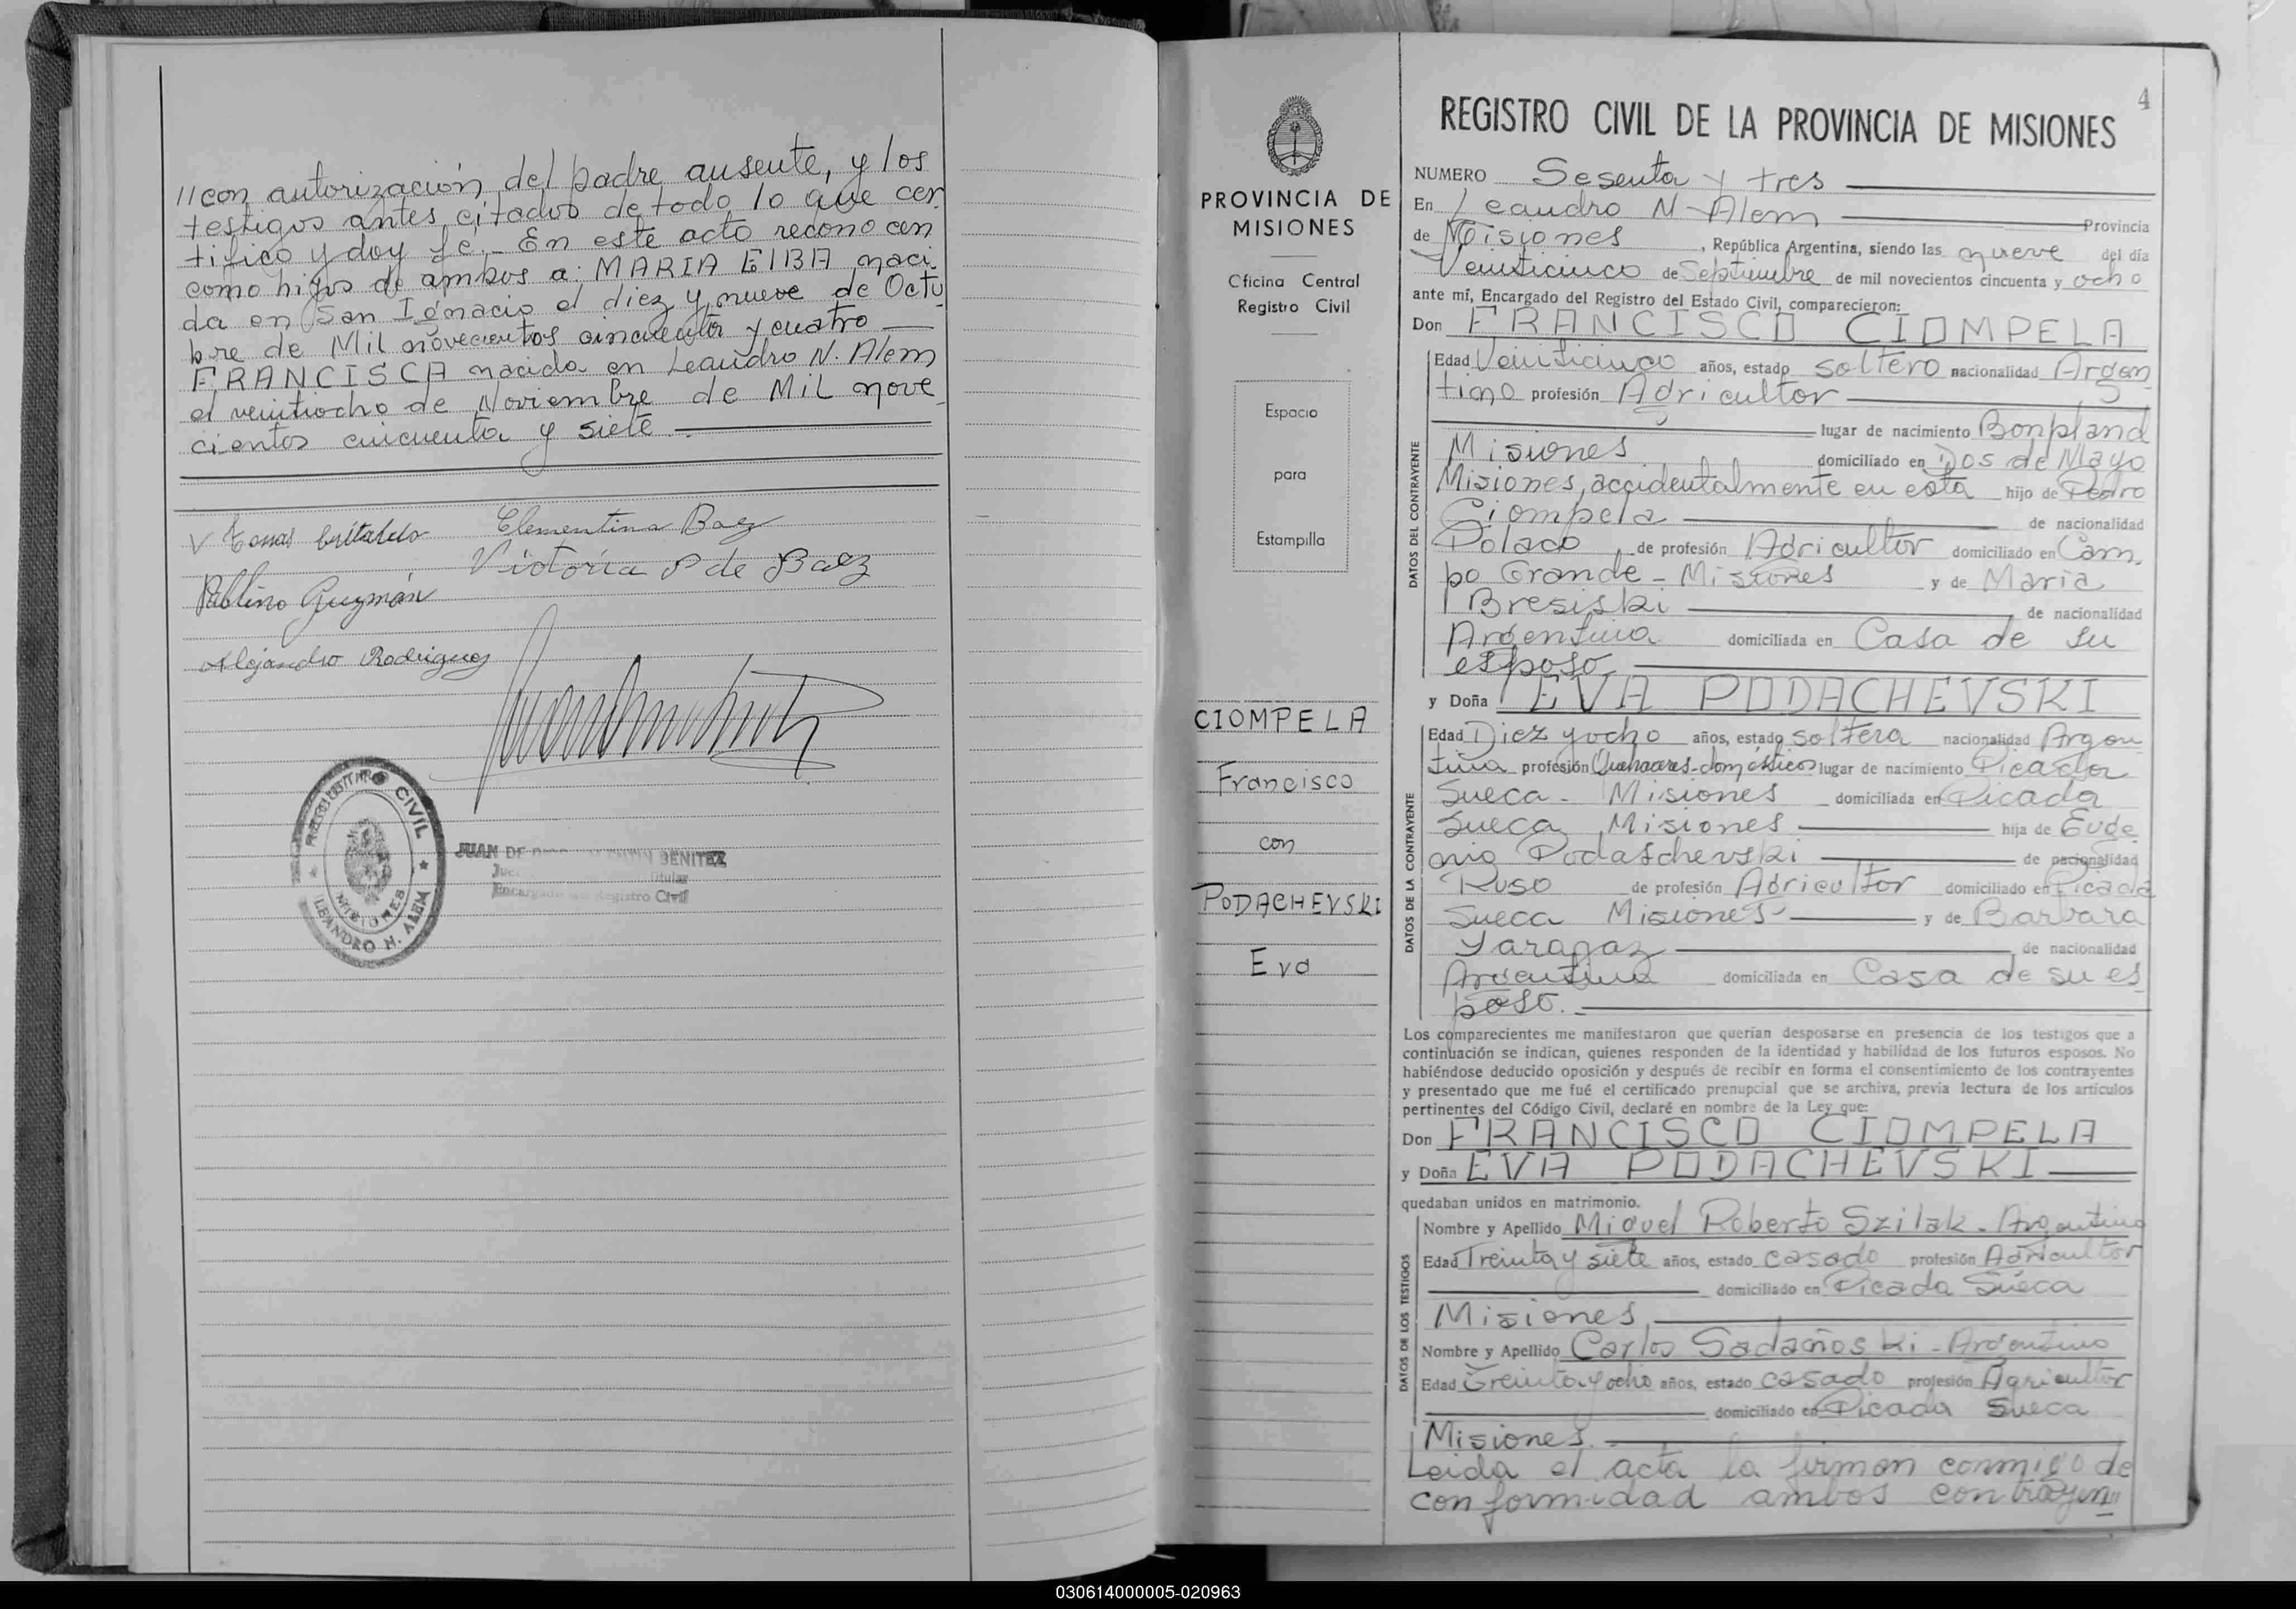 //con autorización del padre ausente, y los
testigos antes citados de todo lo que cer
tifico y doy fe.- En este acto reconocen
como hijos de ambos a: MARIA ELBA naci
da en San Ignacio el diez y nueve de Octu
bre de Mil novecientos cincuenta y cuatro
FRANCISCA nacida en Leandro N. Alem
el veintiocho de Noviembre de Mil nove
cientos cincuenta y siete
Clementina Baez
Victoria P de Baez
Pablino Guzmán
Alejandro Rodriguez
REGISTRO CIVIL
MISIONES
LEANDRO N. ALEM
JUAN DE BENITEZ
Titular
Encargado Registro Civil
PROVINCIA DE
MISIONES
Oficina Central
Registro Civil
Espacio
para
Estampilla
CIOMPELA
Francisco
con
PODACHEVSKI
Eva
4
REGISTRO CIVIL DE LA PROVINCIA DE MISIONES
NUMERO Sesenta y tres
En Leandro N Alem Provincia
de Misiones, República Argentina, siendo las nueve del día
Veinticinco de Septiembre de mil novecientos cincuenta y ocho
ante mí, Encargado del Registro del Estado Civil, comparecieron:
Don FRANCISCO CIOMPELA
DATOS DEL CONTRAYENTE
Edad Veinticinco años, estado soltero nacionalidad Argen
tino profesión Agricultor
lugar de nacimiento Bonpland
Misiones domiciliado en Dos de Mayo
Misiones, accidentalmente en esta hijo de Pedro
Ciompela de nacionalidad
Polaco de profesión Agricultor domiciliado en Cam
po Grande - Misiones y de Maria
Bresiski de nacionalidad
Argentina domiciliada en Casa de su
esposo
y Doña EVA PODACHEVSKI
DATOS DE LA CONTRAYENTE
Edad Diez y ocho años, estado soltera nacionalidad Argen
tina profesión Quehaceres-domésticos lugar de nacimiento Picada
Sueca - Misiones domiciliada en Picada
Sueca, Misiones hija de Euge
nio Podaschevski de nacionalidad
Ruso de profesión Agricultor domiciliado en Picada
Sueca Misiones y de Barbara
Yaragaz de nacionalidad
Argentina domiciliada en Casa de su es
poso.
Los comparecientes me manifestaron que querían desposarse en presencia de los testigos que a
continuación se indican, quienes responden de la identidad y habilidad de los futuros esposos. No
habiéndose deducido oposición y después de recibir en forma el consentimiento de los contrayentes
y presentado que me fué el certificado prenupcial que se archiva, previa lectura de los artículos
pertinentes del Código Civil, declaré en nombre de la Ley que:
Don FRANCISCO CIOMPELA
y Doña EVA PODACHEVSKI
quedaban unidos en matrimonio.
DATOS DE LOS TESTIGOS
Nombre y Apellido Miguel Roberto Szilak - Argentino
Edad Treinta y siete años, estado casado profesión Agricultor
domiciliado en Picada Sueca
Misiones
Nombre y Apellido Carlos Sadañoski - Argentino
Edad Treinta y ocho años, estado casado profesión Agricultor
domiciliado en Picada Sueca
Misiones
Leida el acta la firman conmigo de
conformidad ambos contrayen//
030614000005-020963